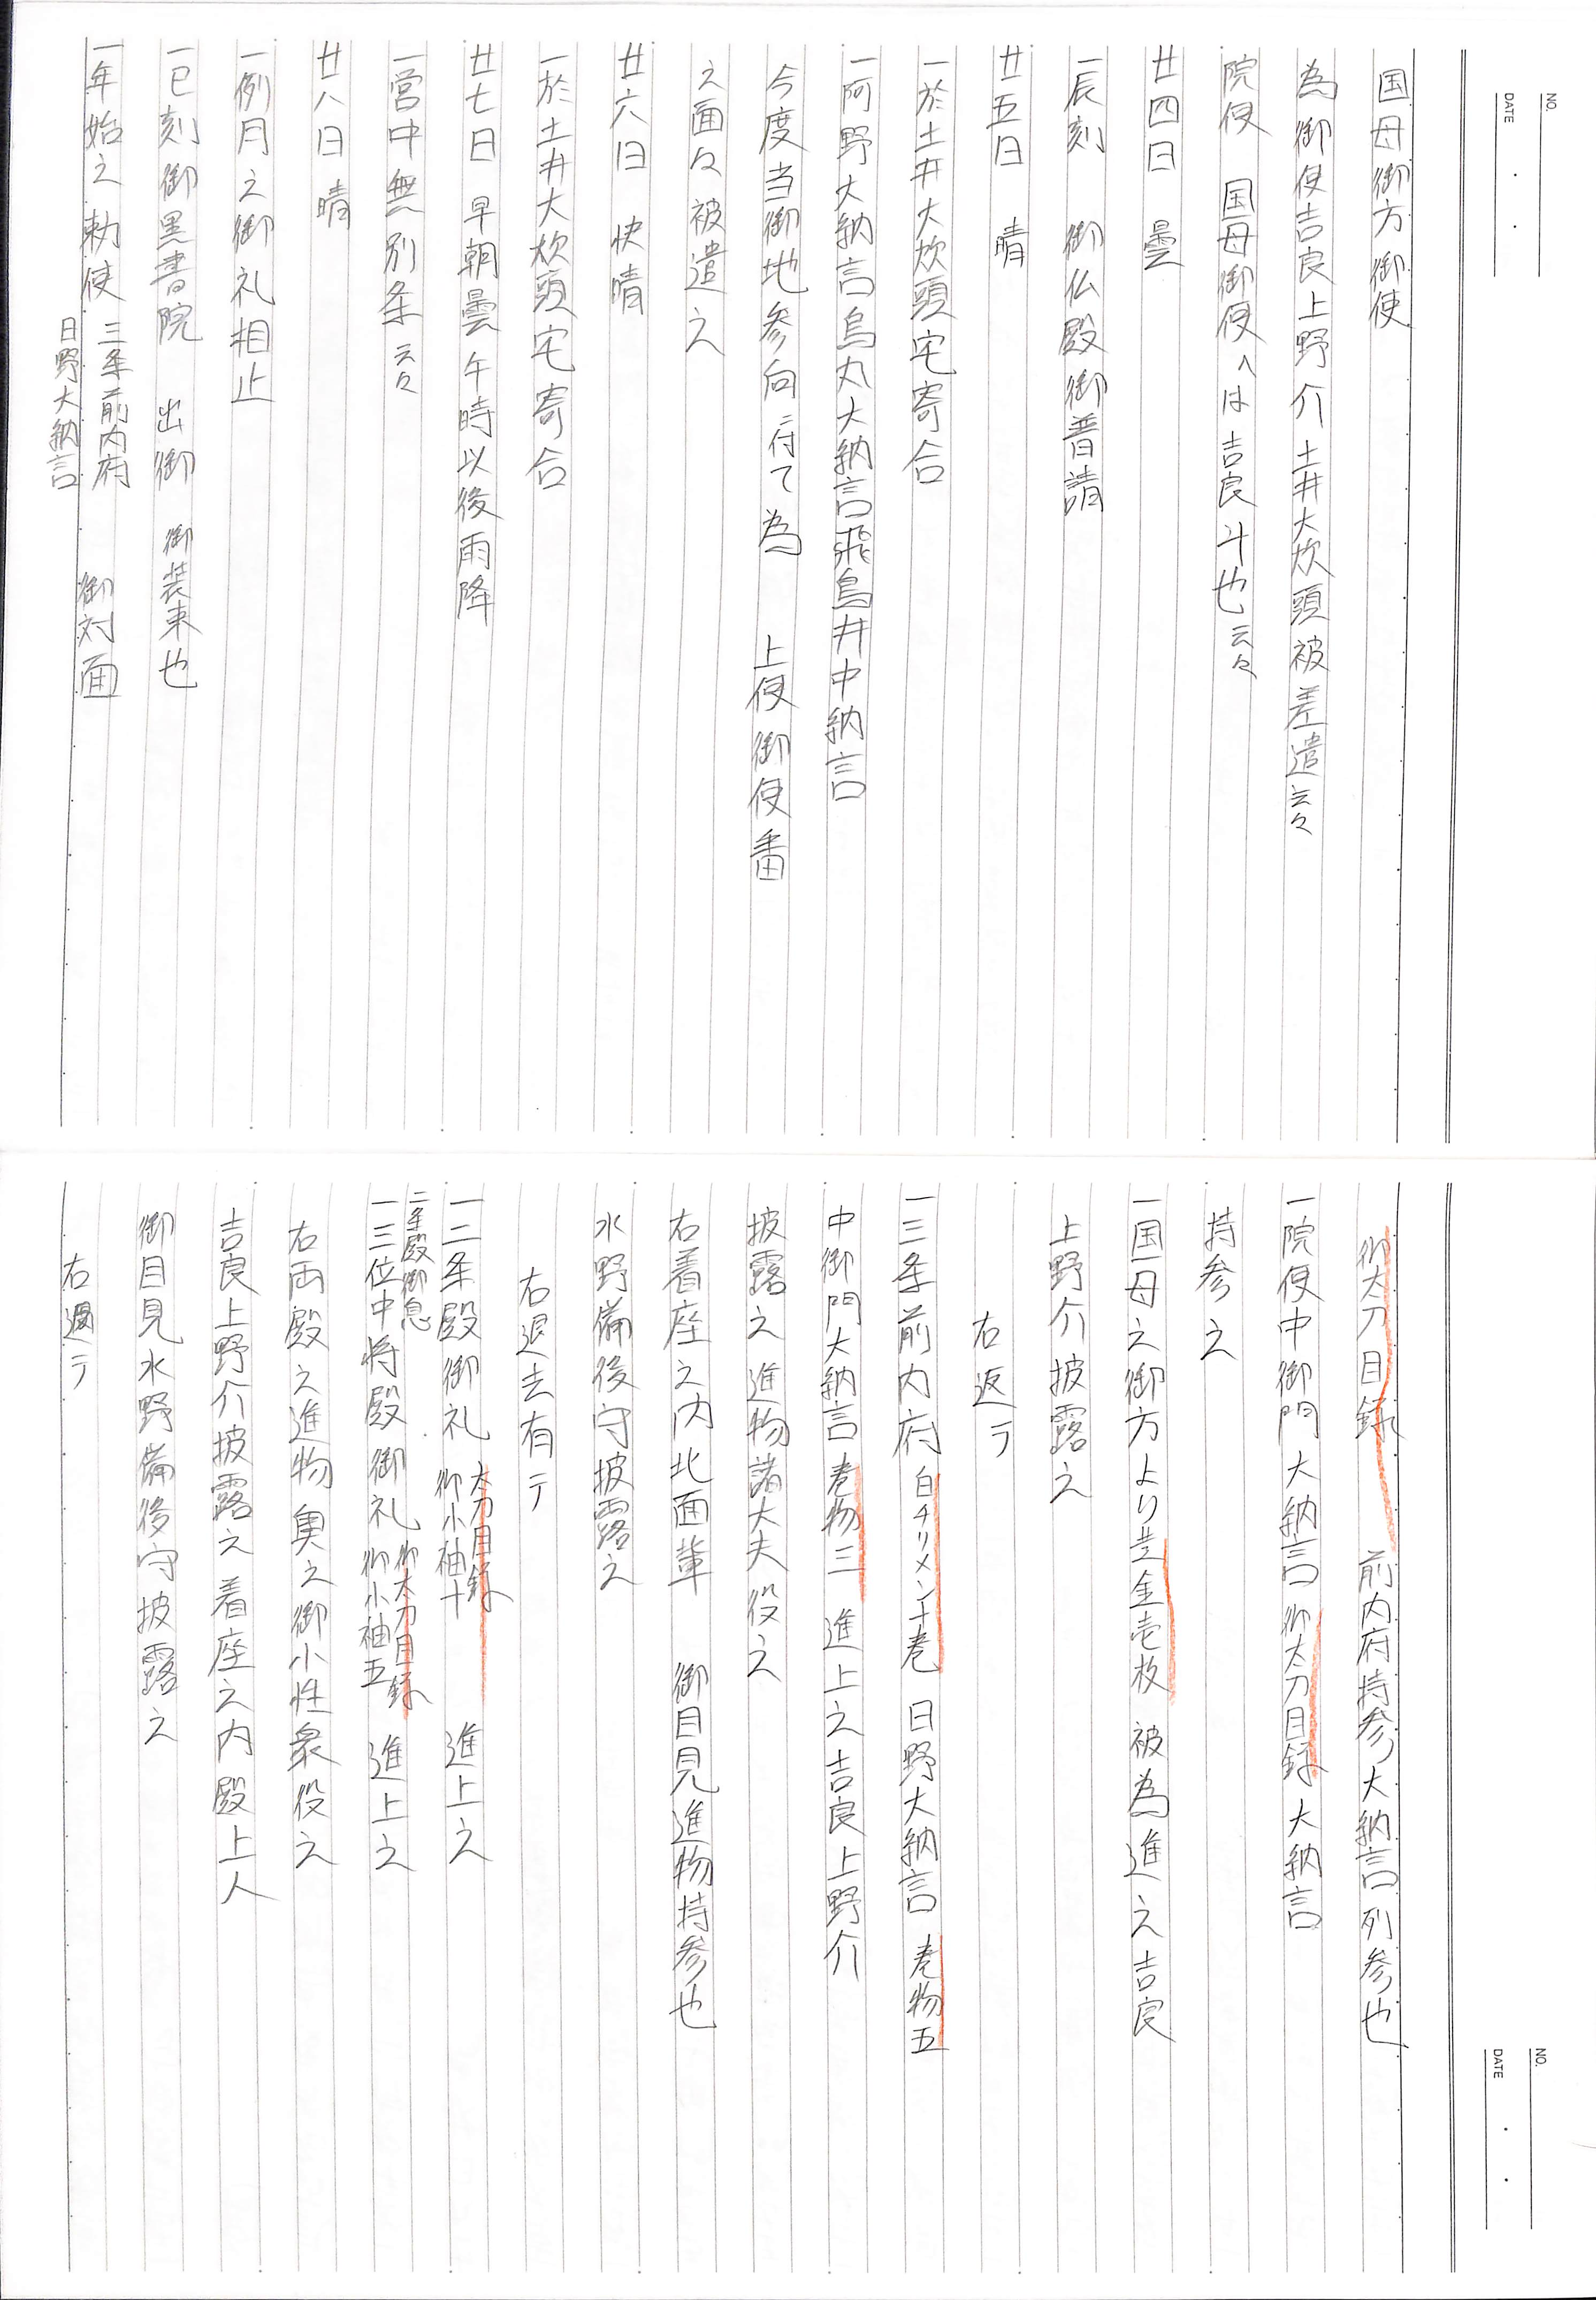 NO.
DATE
国母御方御使
為御使吉良上野介土井大炊頭被差遣云々
院使 国母御使へは吉良斗也云々
廿四日 曇
一辰刻 御仏殿御普請
廿五日 晴
一於土井大炊頭宅寄合
一阿野大納言烏丸大納言飛鳥井中納言
今度当御地参向ニ付て為 上使御使番
之面々被遣之
廿六日 快晴
一於土井大炊頭宅寄合
廿七日 早朝曇午時以後雨降
一営中無別条云々
廿八日 晴
一例月之御礼相止
一巳刻御黒書院 出御 御装束也
一年始之勅使 三条前内府 日野大納言 御対面
NO.
DATE
御太刀目録 前内府持参大納言列参也
一院使中御門大納言御太刀目録大納言
持参之
一国母之御方より 金壱枚 被為進之吉良
上野介披露之
右返テ
一三条前内府 白チリメン十巻 日野大納言 巻物五
中御門大納言 巻物三 進上之吉良上野介
披露之進物諸大夫役之
右着座之内北面輩 御目見進物持参也
水野備後守披露之
右退去有テ
一二条殿御礼 太刀目録 御小袖十 進上之
二条殿御息
一三位中将殿御礼 御太刀目録 御小袖五 進上之
右両殿之進物奥之御小性衆役之
吉良上野介披露之着座之内殿上人
御目見水野備後守披露之
右 テ